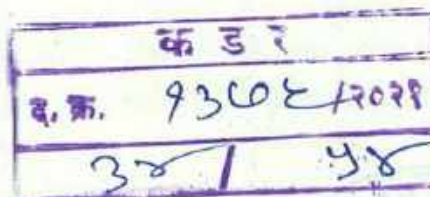 क ड र
द. क्र. १३७६/२०२१
३४ / ५४